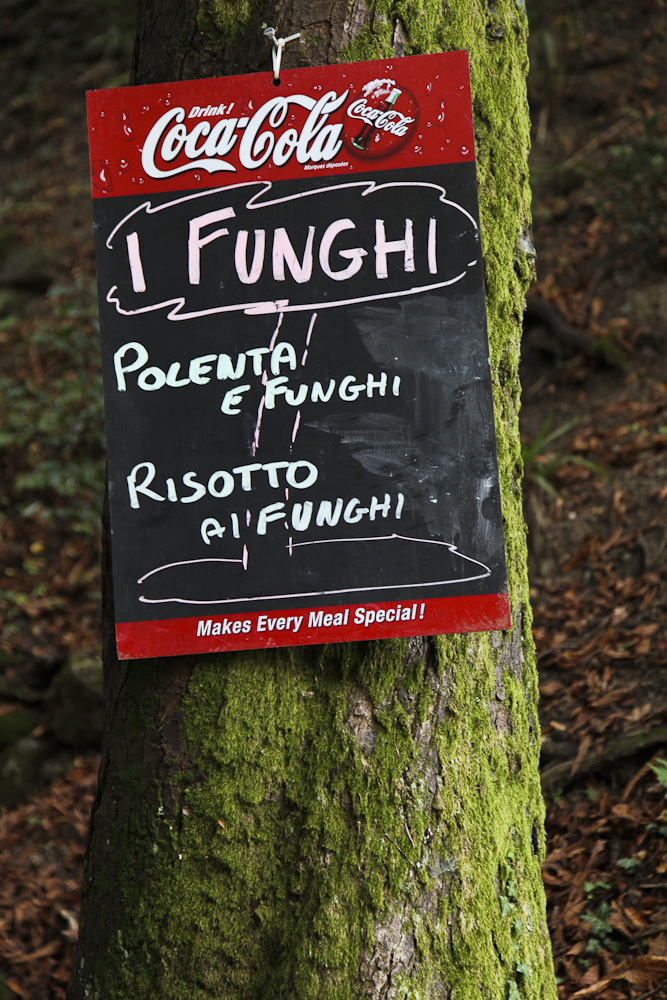 Drink!
Coca-Cola
Coca-Cola
Marques déposées
I FUNGHI
POLENTA
E FUNGHI
RISOTTO
AI FUNGHI
Makes Every Meal Special!